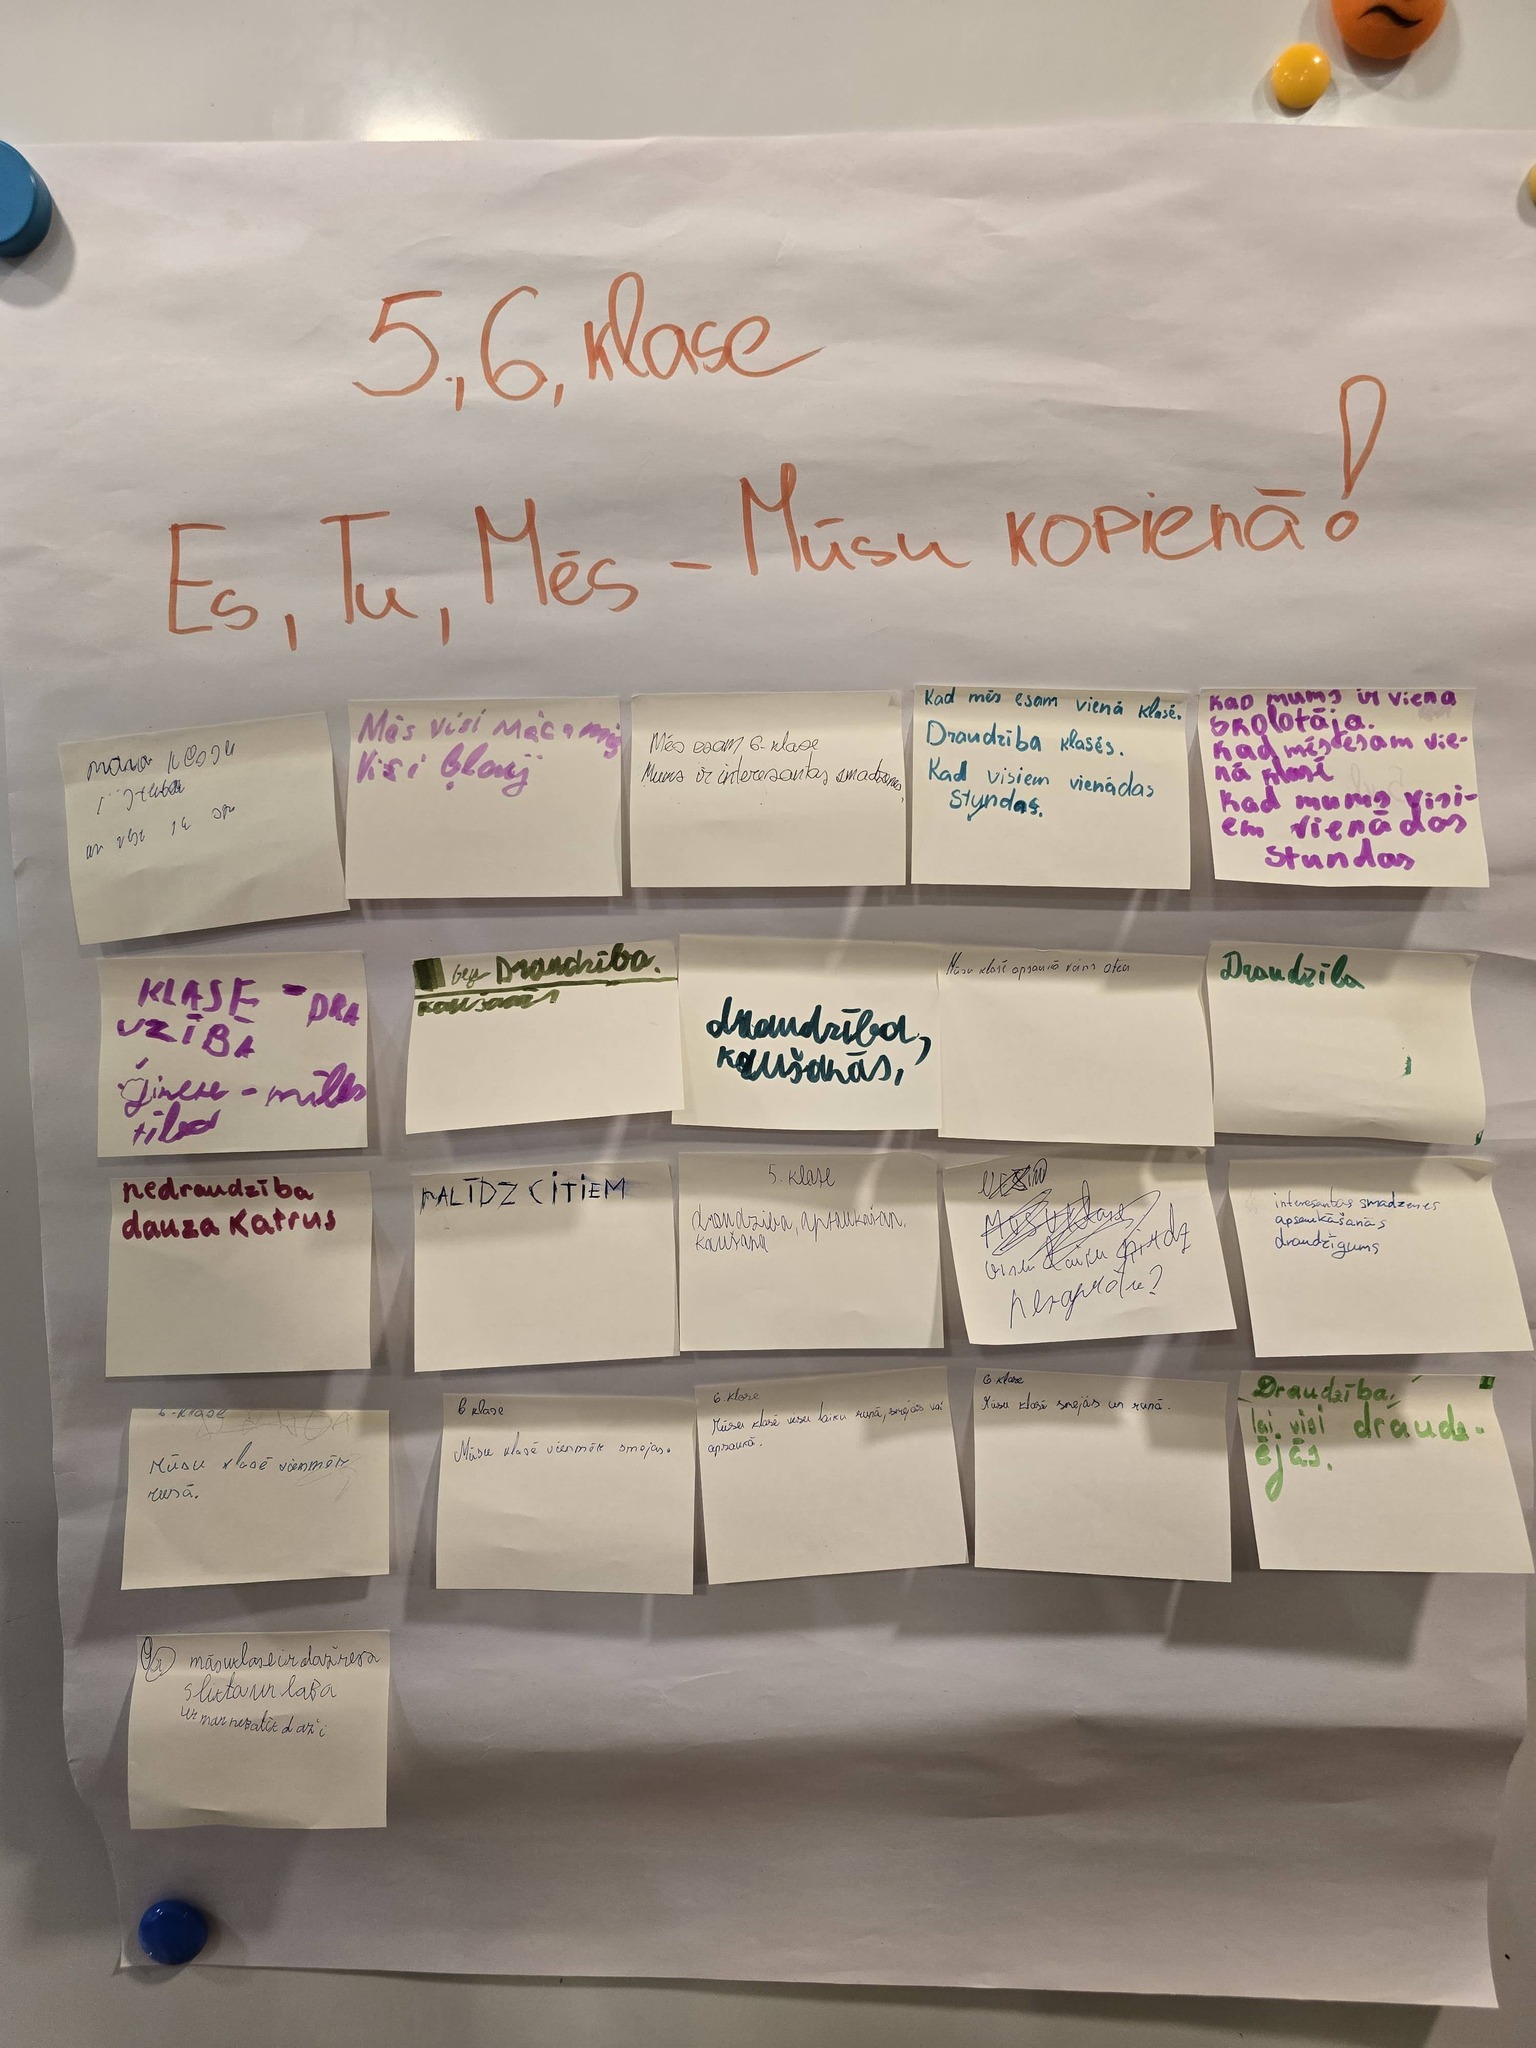 5., 6, klase
Es, Tu, Mēs - Mūsu kopienā!
Mēs visi mācamies
Visi bļauj
Mēs esam 6. klase
Mums ir interesantas smadzenes
Kad mēs esam vienā klasē.
Draudzība klasēs.
Kad visiem vienādas
stundas.
Kad mums ir viena
skolotāja.
Kad mēs esam vie-
nā klasē
Kad mums visi-
em vienādas
stundas
KLASE - DRA
UZĪBA
Ģimene - mīles
tība
Draudzība.
kaušanās
draudzība,
kaušanās,
Mūsu klasē apsaukā viens otru
Draudzība
nedraudzība
dauza Katrus
PALĪDZ CITIEM
5. klase
draudzība, apsaukāšan,
kaušana
Mūsu klase
visu laiku
interesantas smadzenes
apsaukāšanās
draudzīgums
6. klase
Mūsu klasē vienmēr
runā.
6 klase
Mūsu klasē vienmēr smejas.
6. klase
Mūsu klasē visu laiku runā, smejās vai
apsaukā.
6. klase
Mūsu klasē smejās un runā.
Draudzība,
lai visi draudz-
ējās.
māsu klase ir dažreza
slikta un laba